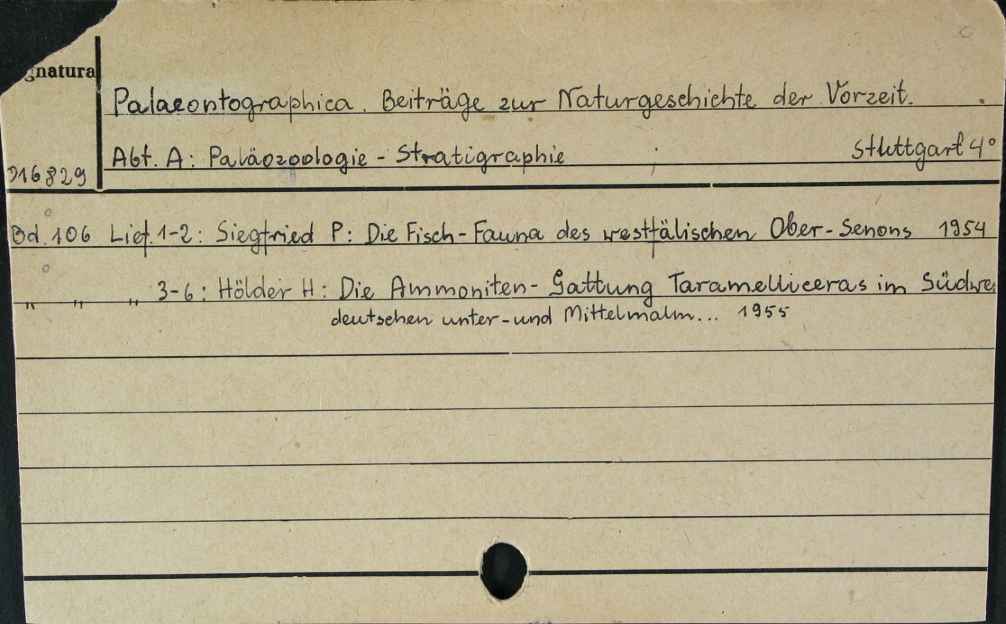 gnatura
Palaeontographica. Beiträge zur Naturgeschichte der Vorzeit.
Abt. A: Paläozoologie - Stratigraphie Stuttgart 4°
916829
Bd. 106 Lief. 1-2: Siegfried P: Die Fisch-Fauna des westfälischen Ober-Senons 1954
" " " 3-6: Hölder H: Die Ammoniten-Gattung Taramelliceras im Südwe
deutschen unter-und Mittelmalm... 1955